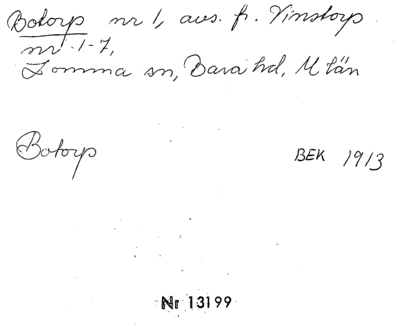 Botorp nr 1, avs. fr. Vinstorp
nr 1-7,
Lomma sn, Bara hd, M län
Botorp
BEK 1913
Nr 13199